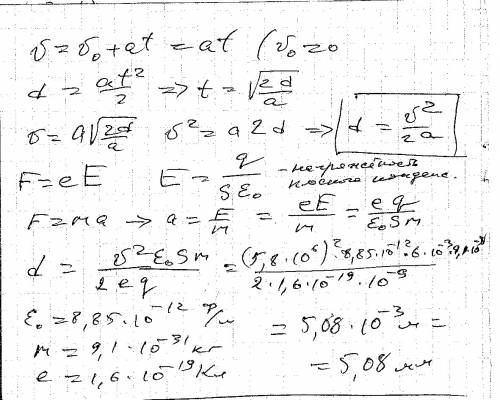 v = v₀ + at = at (v₀ = 0
d = at²/2 => t = √(2d/a)
v = a√(2d/a) v² = a2d => d = v²/2a
F = eE E = q/Sε₀ - напряжённость плоского конденс.
F = ma → a = F/m = eE/m = eq/ε₀Sm
d = v²ε₀Sm/2eq = (5,8·10⁶)²·8,85·10⁻¹²·6·10⁻³·9,1·10⁻³¹/2·1,6·10⁻¹⁹·10⁻⁹
ε₀ = 8,85·10⁻¹² Ф/м = 5,08·10⁻³ м =
m = 9,1·10⁻³¹ кг
e = 1,6·10⁻¹⁹ Кл = 5,08 мм